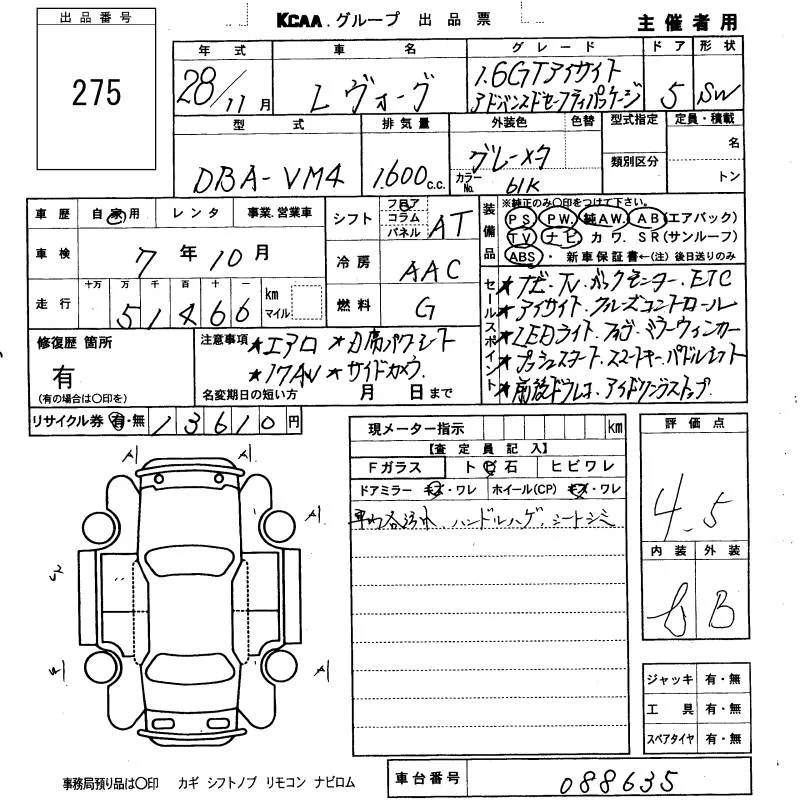 出品番号
275
KCAA.グループ 出品票
主催者用
年式 車名 グレード ドア 形状
28/11月 レヴォーグ 1.6GTアイサイト 5 SW
アドバンスドセーフティパッケージ
型式 排気量 外装色 色替 型式指定 定員・積載
DBA-VM4 1.600c.c. グレーメタ 名
カラーNo. 61K 類別区分 トン
車歴 自家用 レンタ 事業.営業車
シフト フロア コラム パネル AT
装備品 ※純正のみ○印をつけて下さい。
PS PW. 純AW. AB(エアバック)
TV ナビ カワ. SR(サンルーフ)
ABS・新車保証書←(注) 後日送りのみ
車検 7年10月
冷房 AAC
走行 十万 万 千 百 十 一 km マイル
51466
燃料 G
セールスポイント
★ナビ・TV.バックモニター.ETC
★アイサイト.クルーズコントロール
★LEDライト.フォグ.ミラーウィンカー
★プッシュスタート.スマートキー.パドルシフト
★前後ドラレコ.アイドリングストップ.
修復歴 箇所
有
(有の場合は○印を)
注意事項 ★エアロ ★D席パワーシート
★17AW ★サイドカメラ
名変期日の短い方 月 日まで
リサイクル券 有・無 13610円
現メーター指示 km
【査定員記入】
Fガラス トビ石 ヒビワレ
ドアミラー キズ・ワレ ホイール(CP) キズ・ワレ
車内各汚れ.ハンドルハゲ.シートシミ
評価点
4.5
内装 外装
B
A1 A1
A1
A1
ジャッキ 有・無
工具 有・無
スペアタイヤ 有・無
事務局預り品は○印 カギ シフトノブ リモコン ナビロム
車台番号 088635